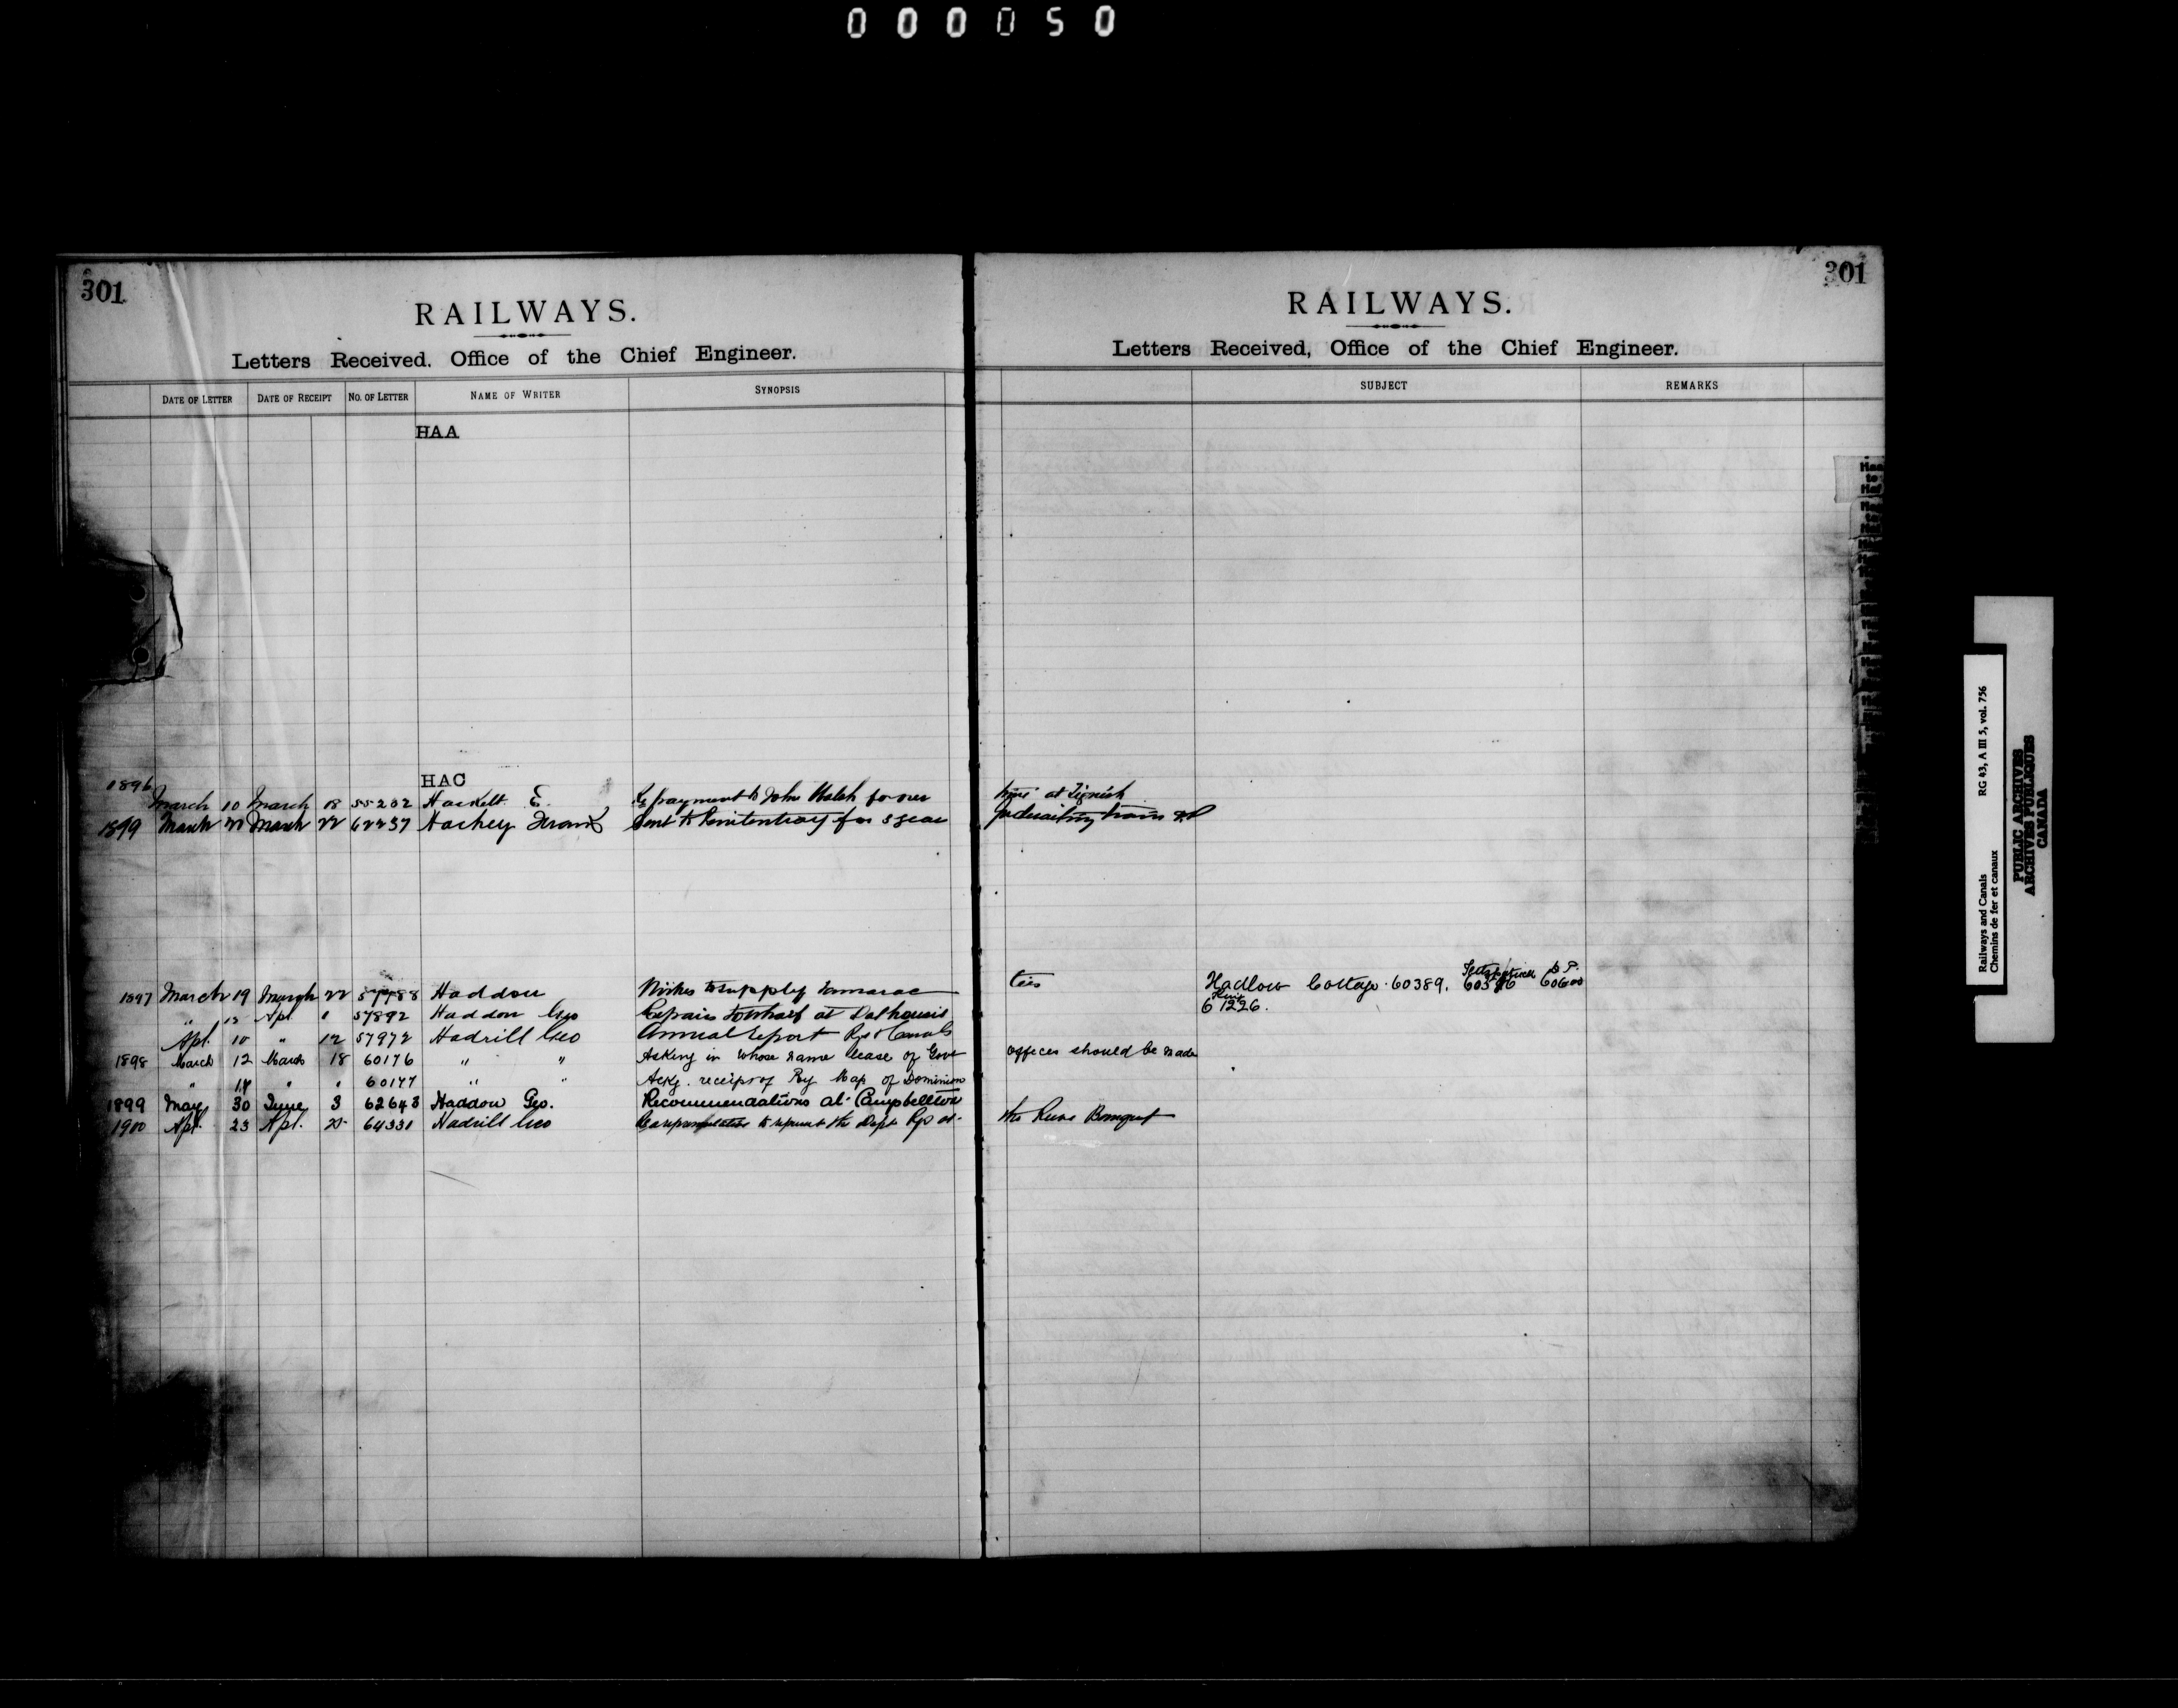 000050
301
RAILWAYS.
Letters Received, Office of the Chief Engineer.
DATE OF LETTER DATE OF RECEIPT No. OF LETTER NAME OF WRITER SYNOPSIS
HAA
HAC
1896
March 10 March 18 55202 Hackett E. payment to John Walsh for over
1899 March March 22 62237 Hackey Frank Sent to Penitentiary for 3 years
1897 March 19 March 22 Haddow Wishes to supply Tamarac
" Apl. 57892 Haddow Geo Repairs to Wharf at Dalhousie
Apl. 10 " 12 57972 Hadrill Geo Annual report Rys & Canals
1898 March 12 March 18 60176 " " Asking in whose name lease of Govt
" 14 " " 60177 " " Ackg. receipt of Ry Map of Dominion
1899 May 30 June 3 62643 Haddow Geo. Recommendations at Campbellton
1900 Apl. 23 Apl. 25 64331 Hadrill Geo to represent the Dept Rys at
301
RAILWAYS.
Letters Received, Office of the Chief Engineer.
SUBJECT REMARKS
time at Tignish
for derailing train
ties Hadlow Cottage. 60389. 60600
61226.
offices should be made
the Banquet
Railways and Canals RG 43, A III 5, vol. 756
Chemins de fer et canaux
PUBLIC ARCHIVES
ARCHIVES PUBLIQUES
CANADA